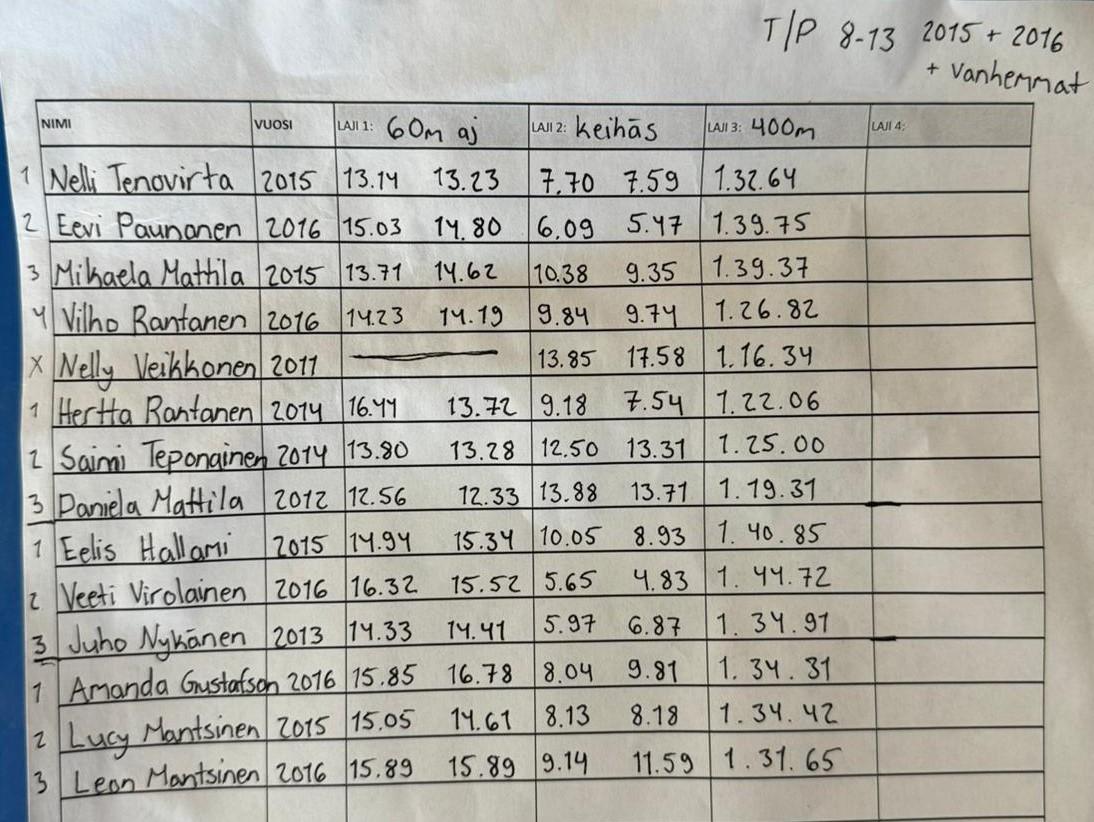 T/P 8-13 2015 + 2016
+ vanhemmat
NIMI VUOSI LAJI 1: 60m aj LAJI 2: keihäs LAJI 3: 400m LAJI 4:
1 Nelli Tenovirta 2015 13.14 13.23 7.70 7.59 1.32.64
2 Eevi Paunonen 2016 15.03 14.80 6.09 5.47 1.39.75
3 Mikaela Mattila 2015 13.71 14.62 10.38 9.35 1.39.37
4 Vilho Rantanen 2016 14.23 14.19 9.84 9.74 1.26.82
X Nelly Veikkonen 2011 13.85 17.58 1.16.34
1 Hertta Rantanen 2014 16.44 13.72 9.18 7.54 1.22.06
2 Saimi Teponainen 2014 13.80 13.28 12.50 13.31 1.25.00
3 Daniela Mattila 2012 12.56 12.33 13.88 13.71 1.19.31
1 Eelis Hallami 2015 14.94 15.34 10.05 8.93 1.40.85
2 Veeti Virolainen 2016 16.32 15.52 5.65 4.83 1.44.72
3 Juho Nykänen 2013 14.33 14.41 5.97 6.87 1.34.91
1 Amanda Gustafson 2016 15.85 16.78 8.04 9.81 1.34.31
2 Lucy Mantsinen 2015 15.05 14.61 8.13 8.18 1.34.42
3 Leon Mantsinen 2016 15.89 15.89 9.14 11.59 1.31.65